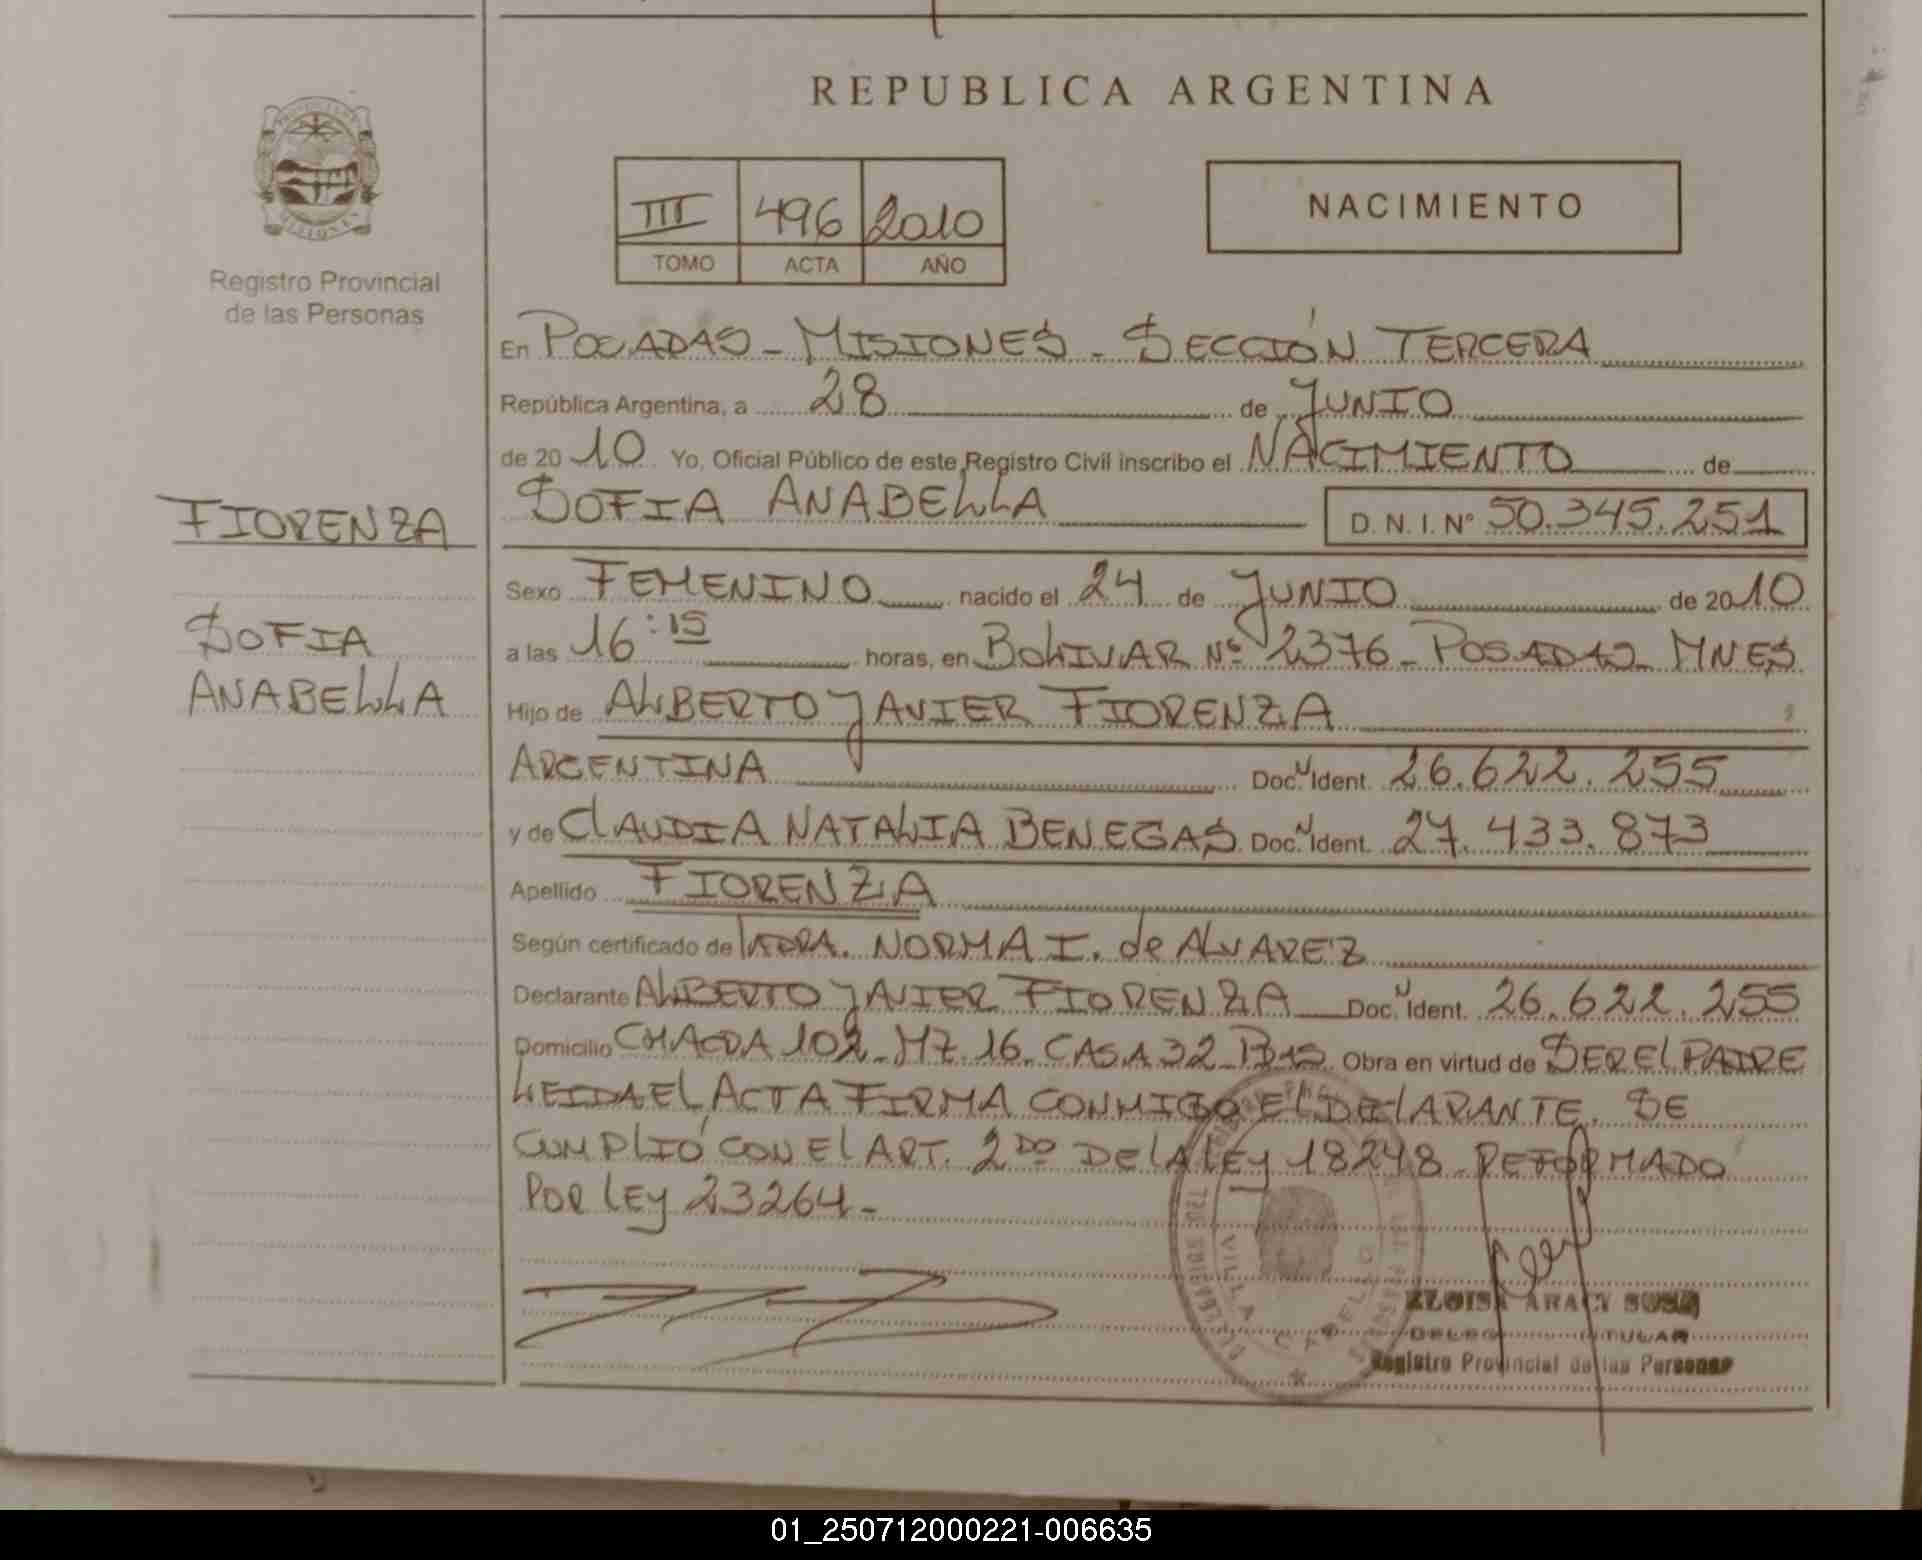 REPUBLICA ARGENTINA
III 496 2010
TOMO ACTA AÑO
NACIMIENTO
Registro Provincial
de las Personas
En POSADAS - MISIONES - SECCIÓN TERCERA
República Argentina, a 28 de JUNIO
de 2010 Yo, Oficial Público de este Registro Civil inscribo el NACIMIENTO de
SOFIA ANABELLA D.N.I. N° 50.345.251
FIORENZA
SOFIA
ANABELLA
Sexo FEMENINO nacido el 24 de JUNIO de 2010
a las 16:15 horas, en BOLIVAR N° 2376 - POSADAS MNES
Hijo de ALBERTO JAVIER FIORENZA
ARGENTINA Doc. Ident. 26.622.255
y de CLAUDIA NATALIA BENEGAS Doc. Ident. 27.433.873
Apellido FIORENZA
Según certificado de NORMA I. de ALVAREZ
Declarante ALBERTO JAVIER FIORENZA Doc. Ident. 26.622.255
Domicilio CHACRA 102 - MZ. 16 - CASA 32 - Obra en virtud de SER EL PADRE
LEIDA EL ACTA FIRMA CONMIGO EL DECLARANTE. SE
CUMPLIÓ CON EL ART. 2DO DE LA LEY 18248 REFORMADO
POR LEY 23264 -
VILLA CABELLO
ELOISA ARACY SOSA
TITULAR
Registro Provincial de las Personas
01_250712000221-006635